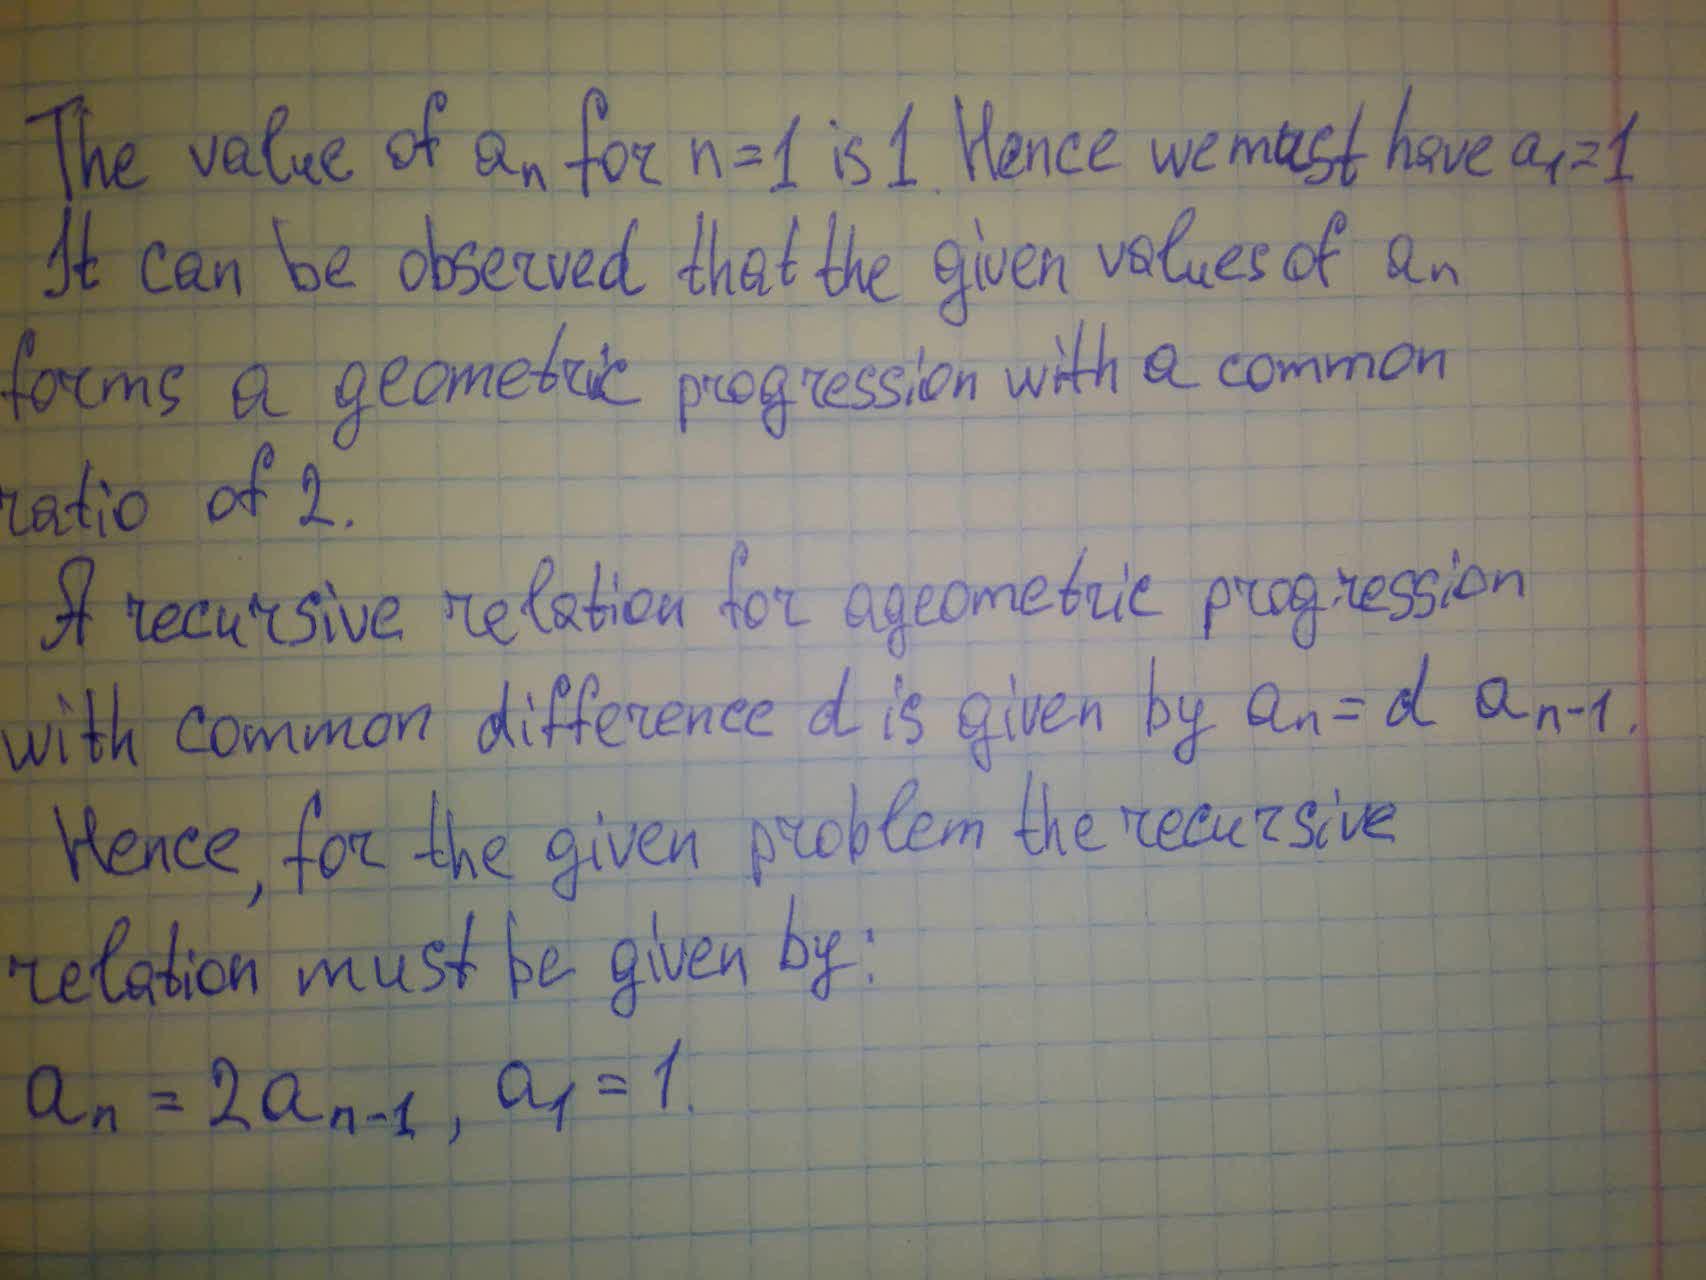 The value of aₙ for n=1 is 1. Hence we must have a₁=1
It can be observed that the given values of aₙ
forms a geometric progression with a common
ratio of 2.
A recursive relation for a geometric progression
with common difference d is given by aₙ = d aₙ₋₁.
Hence, for the given problem the recursive
relation must be given by:
aₙ = 2aₙ₋₁, a₁ = 1.